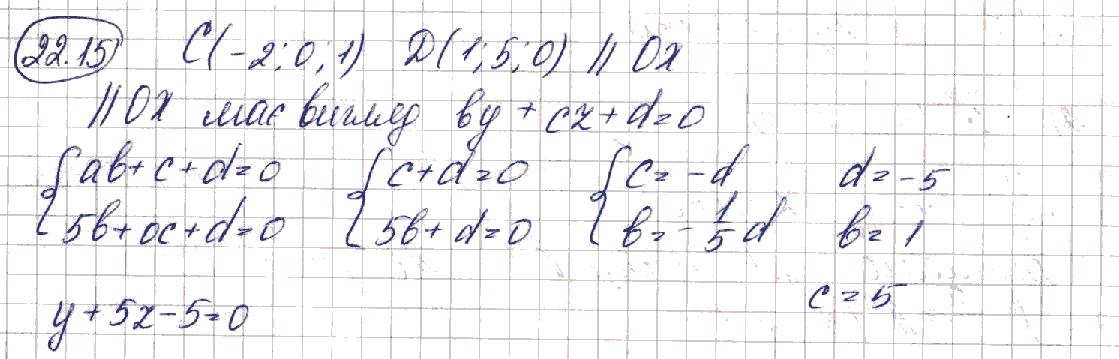 22.15 C(-2;0;1) D(1;5;0) || Ox
|| OX має вигляд by + cz + d = 0
{ 0b + c + d = 0 { c + d = 0 { c = -d d = -5
{ 5b + 0c + d = 0 { 5b + d = 0 { b = -1/5 d b = 1
c = 5
y + 5z - 5 = 0